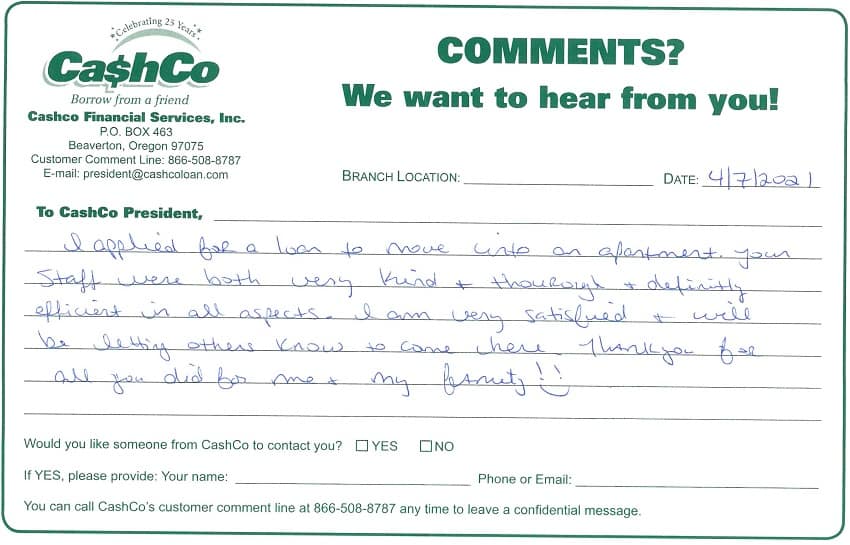 Celebrating 25 Years
Ca$hCo
Borrow from a friend
Cashco Financial Services, Inc.
P.O. BOX 463
Beaverton, Oregon 97075
Customer Comment Line: 866-508-8787
E-mail: president@cashcoloan.com
COMMENTS?
We want to hear from you!
BRANCH LOCATION:
DATE: 4/7/2021
To CashCo President,
I applied for a loan to move into an apartment. your
staff were both very kind + thourorgh + definitly
efficient in all aspects. I am very satisfied + will
be letting others know to come here. Thankyou for
all you did for me + my family!!
Would you like someone from CashCo to contact you? ☐ YES ☐ NO
If YES, please provide: Your name:
Phone or Email:
You can call CashCo's customer comment line at 866-508-8787 any time to leave a confidential message.